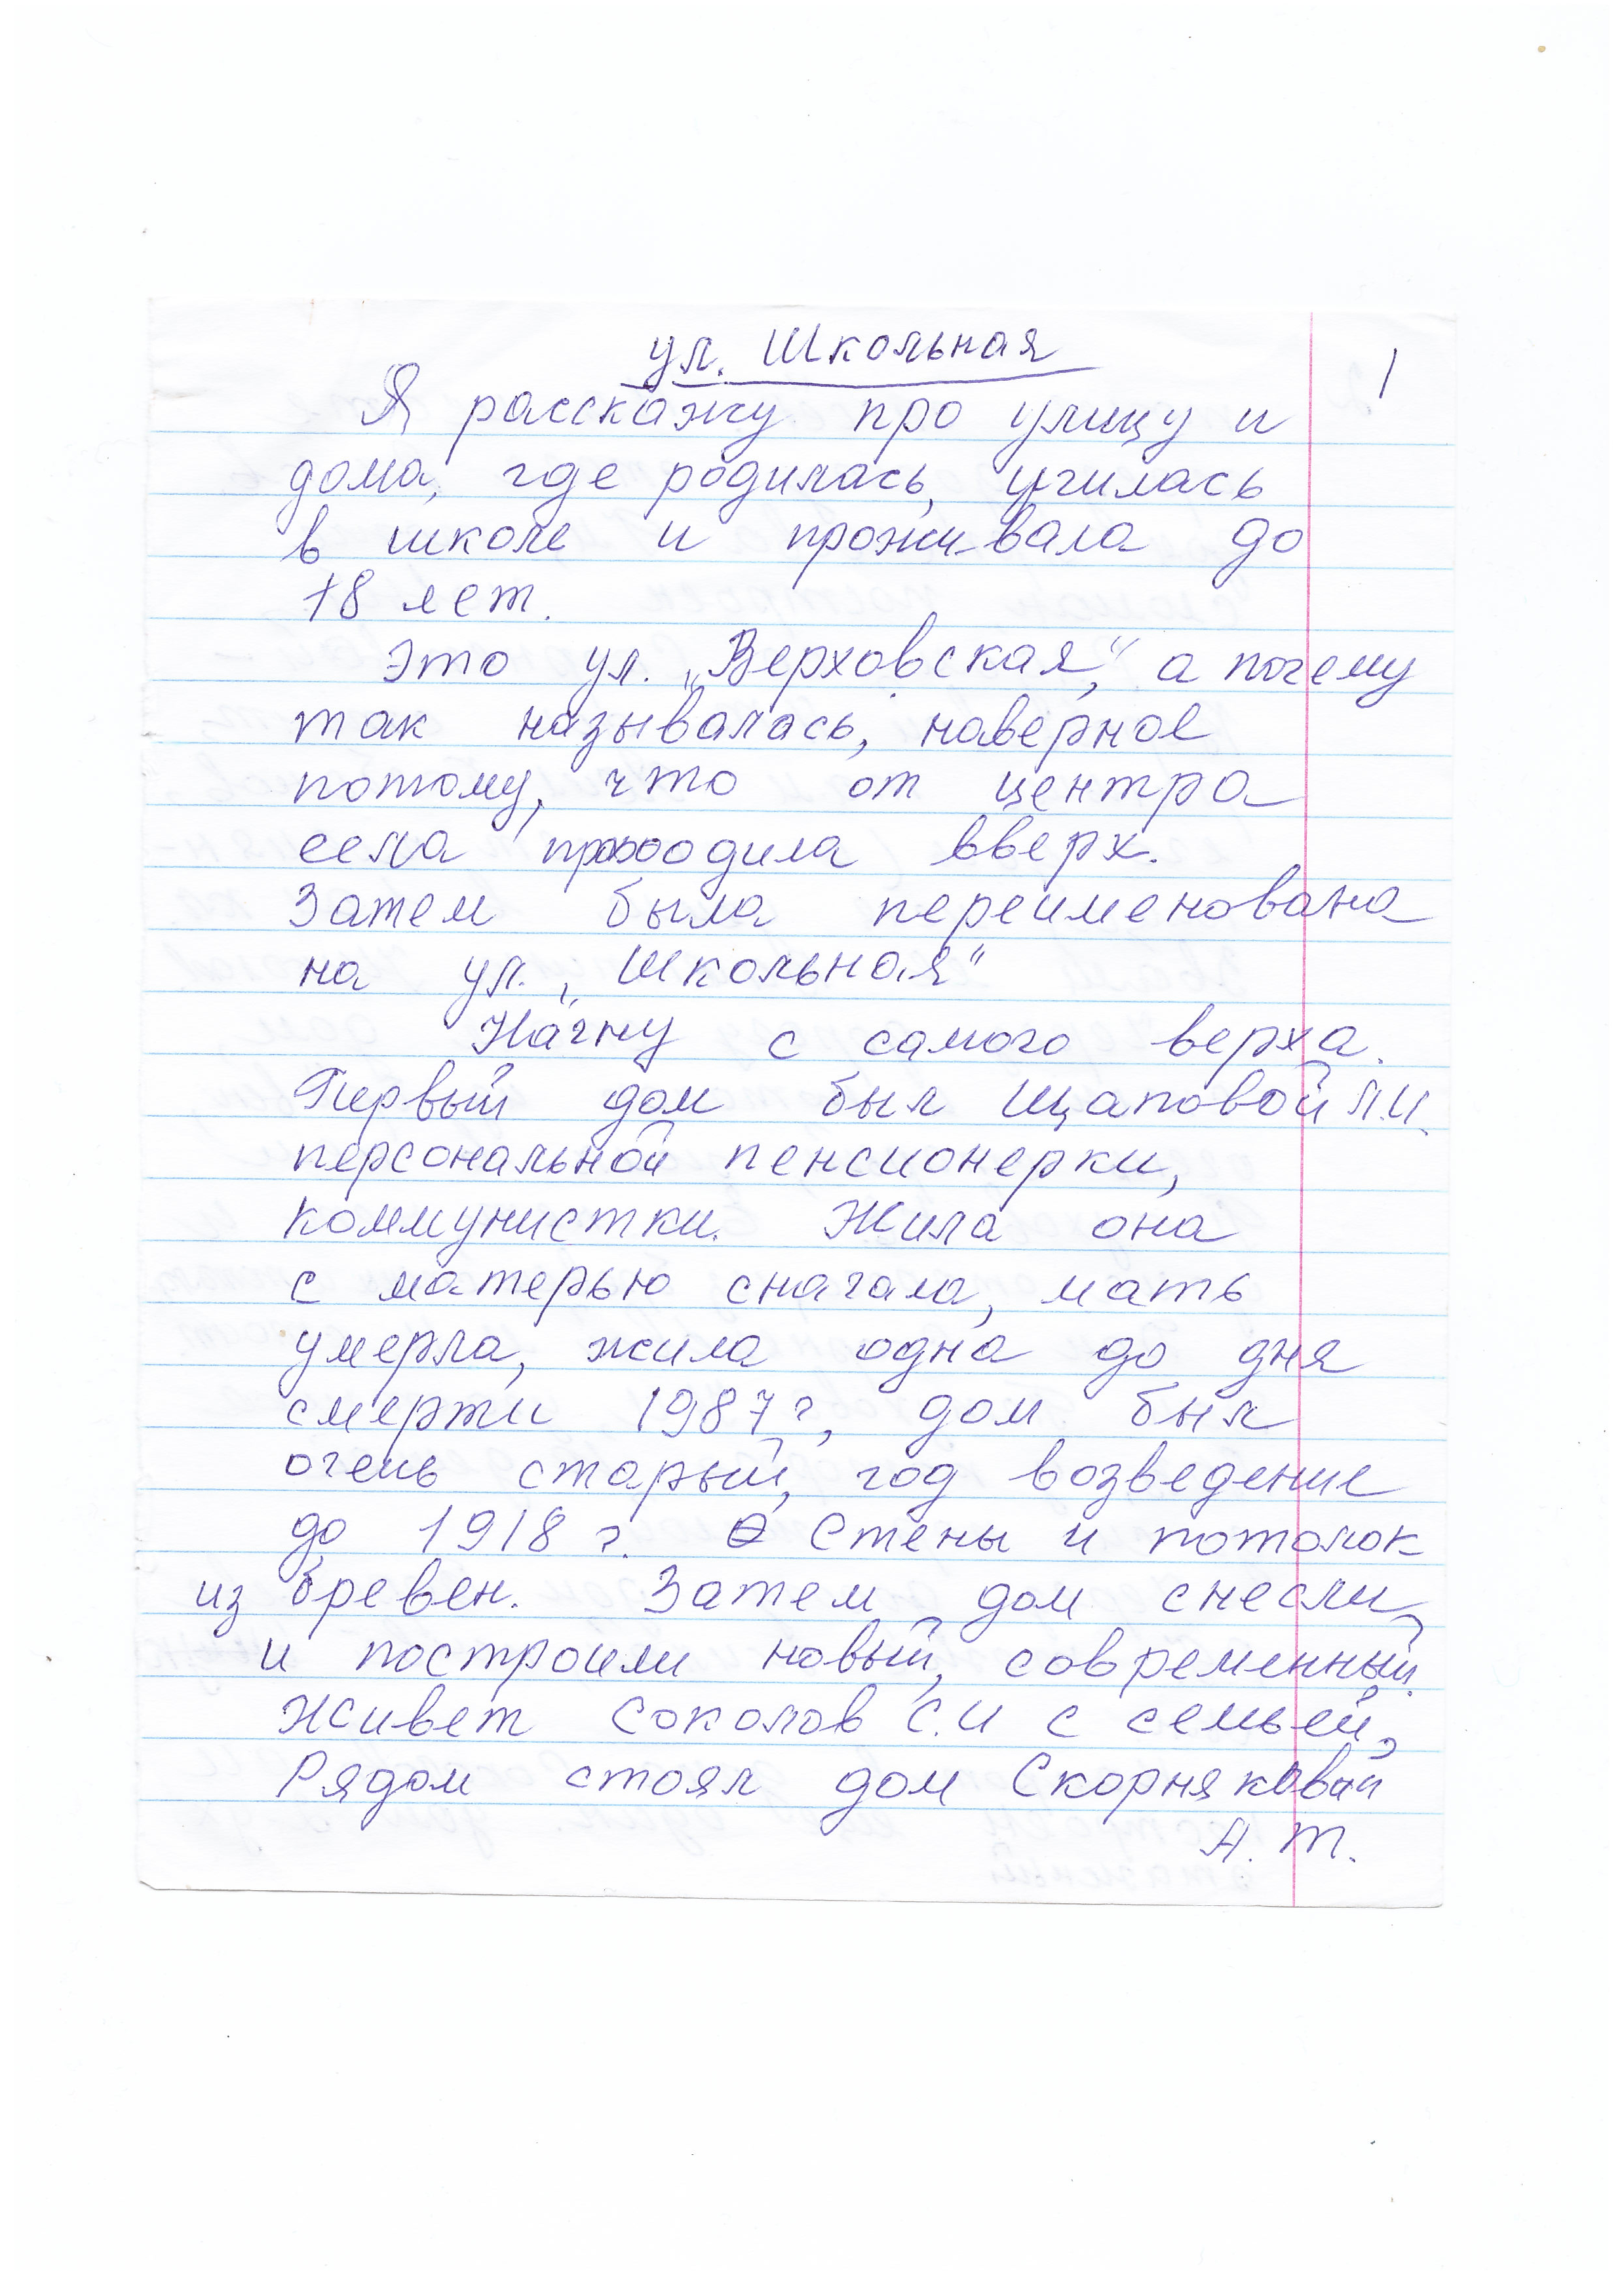 ул. Школьная
1
Я расскажу про улицу и
дома, где родилась, училась
в школе и проживала до
18 лет.
Это ул. „Верховская“, а почему
так называлась, наверное
потому, что от центра
села проходила вверх.
Затем была переименована
на ул. „Школьная“
Начну с самого верха.
Первый дом был Щаповой Л.И.
персональной пенсионерки,
коммунистки. Жила она
с матерью сначала, мать
умерла, жила одна до дня
смерти 1987г, дом был
очень старый, год возведение
до 1918 г. Стены и потолок
из бревен. Затем дом снесли
и построили новый, современный.
Живет Соколов С.И с семьей,
Рядом стоял дом Скорняковой
А. Т.